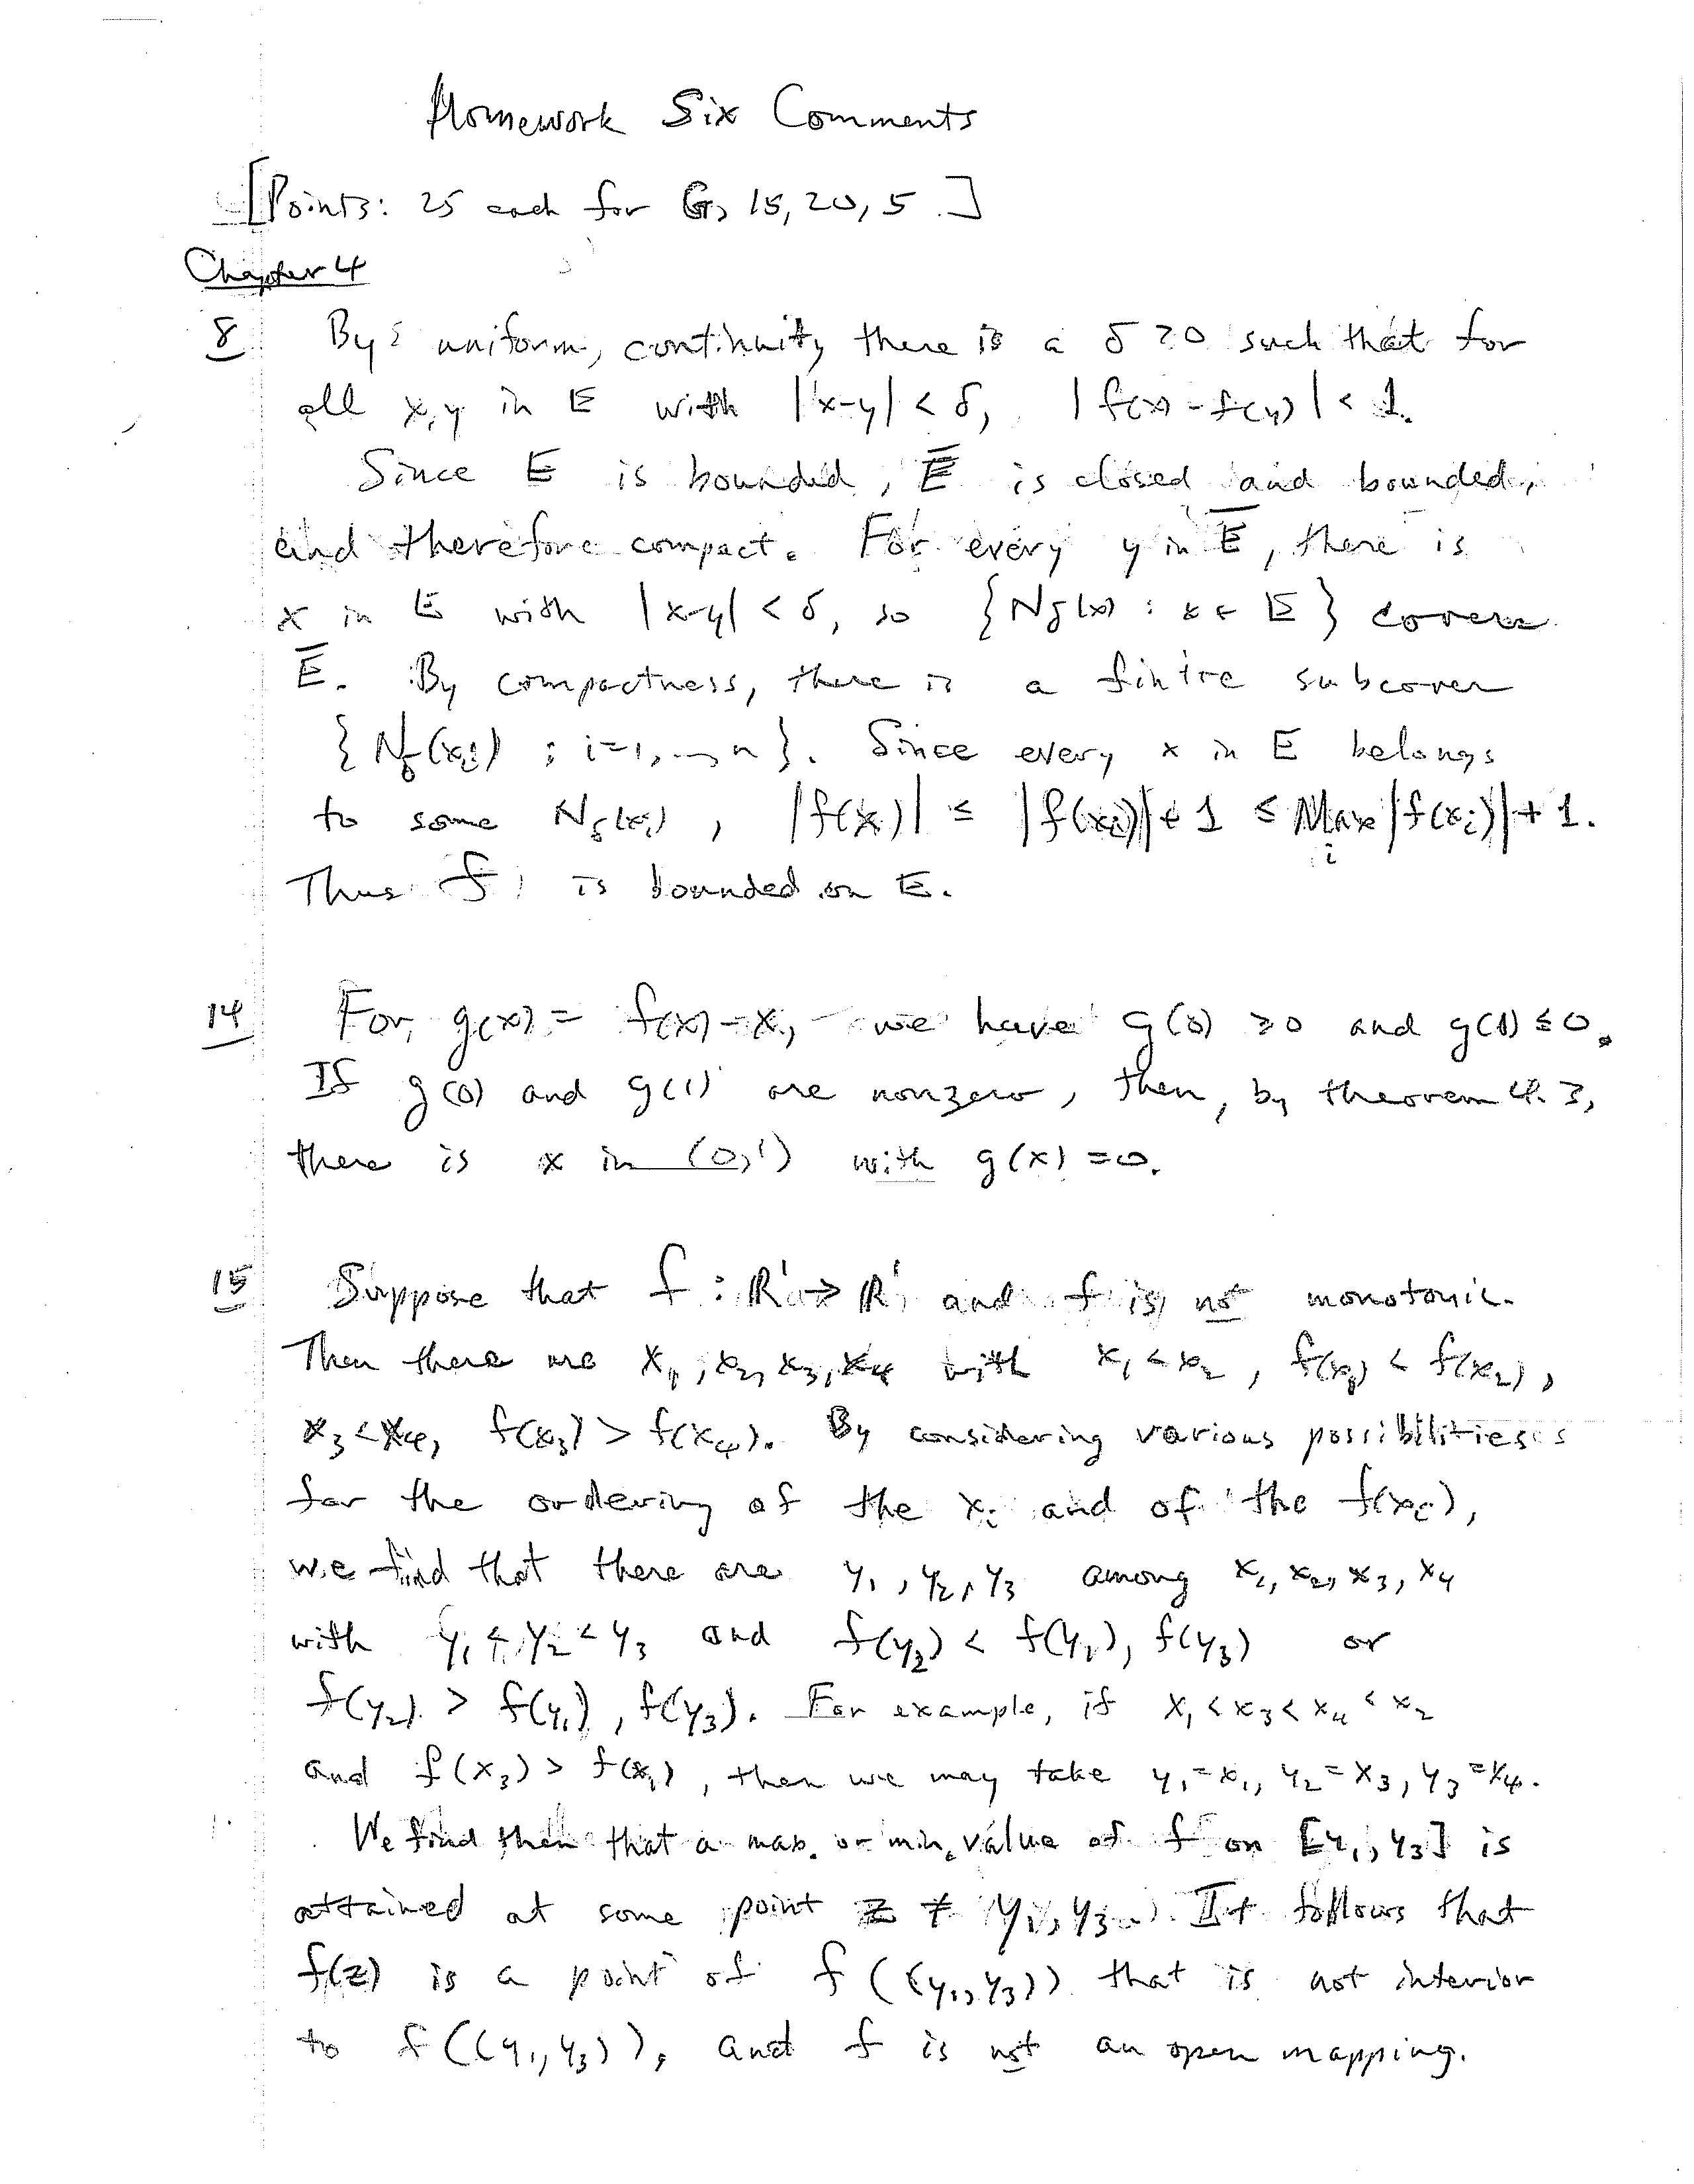 Homework Six Comments
[Points: 25 each for G, 15, 20, 5.]
Chapter 4
8 By uniform, continuity there is a δ>0 such that for
all x,y in E with |x-y| < δ, |f(x) - f(y)| < 1.
Since E is bounded, E̅ is closed and bounded,
and therefore compact. For every y in E̅, there is
x in E with |x-y| < δ, so {Nδ(x) : x ∈ E} covers
E̅. By compactness, there is a finite subcover
{Nδ(xᵢ) ; i=1,...,n}. Since every x in E belongs
to some Nδ(xᵢ), |f(x)| ≤ |f(xᵢ)|+1 ≤ Max |f(xᵢ)|+1.
i
Thus f is bounded on E.
14 For, g(x) = f(x)-x, we have g(0) ≥0 and g(1) ≤ 0.
If g(0) and g(1) are nonzero, then, by theorem 4.3,
there is x in (0,1) with g(x) = 0.
15 Suppose that f : R¹→R¹ and f is not monotonic.
Then there are x₁, x₂, x₃, x₄ with x₁ < x₂, f(x₁) < f(x₂),
x₃ < x₄, f(x₃) > f(x₄). By considering various possibilities
for the ordering of the xᵢ and of the f(xᵢ),
we find that there are y₁, y₂, y₃ among x₁, x₂, x₃, x₄
with y₁ < y₂ < y₃ and f(y₂) < f(y₁), f(y₃) or
f(y₂) > f(y₁), f(y₃). For example, if x₁ < x₃ < x₄ < x₂
and f(x₃) > f(x₁), then we may take y₁=x₁, y₂=x₃, y₃=x₄.
We find then that a max. or min. value of f on [y₁, y₃] is
attained at some point z ≠ y₁, y₃. It follows that
f(z) is a point of f((y₁, y₃)) that is not interior
to f((y₁, y₃)), and f is not an open mapping.